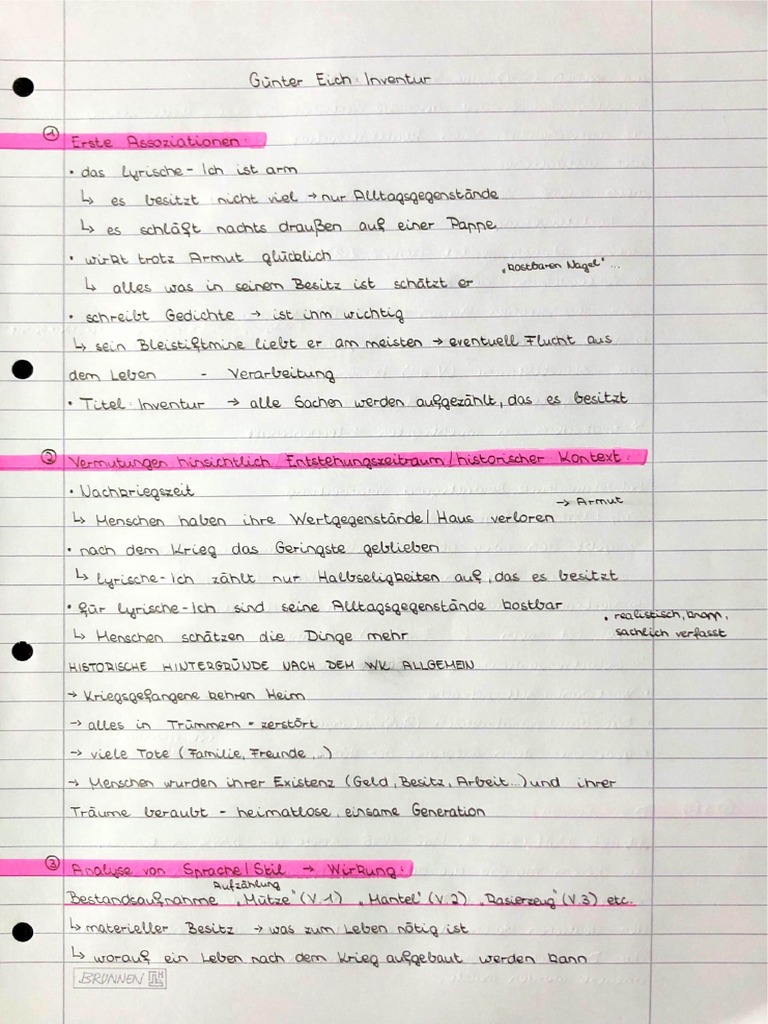 Günter Eich: Inventur
① Erste Assoziationen:
• das lyrische-Ich ist arm
↳ es besitzt nicht viel → nur Alltagsgegenstände
↳ es schläft nachts draußen auf einer Pappe
• wirkt trotz Armut glücklich
„kostbaren Nagel" ...
↳ alles was in seinem Besitz ist schätzt er
• schreibt Gedichte → ist ihm wichtig
↳ sein Bleistiftmine liebt er am meisten → eventuell Flucht aus
dem Leben - Verarbeitung
• Titel: Inventur → alle Sachen werden aufgezählt, das es besitzt
② Vermutungen hinsichtlich Entstehungszeitraum/historischer Kontext:
• Nachkriegszeit
→ Armut
↳ Menschen haben ihre Wertgegenstände/Haus verloren
• nach dem Krieg das Geringste geblieben
↳ lyrische-Ich zählt nur Halbseligkeiten auf, das es besitzt
• für lyrische-Ich sind seine Alltagsgegenstände kostbar
• realistisch, knapp,
sachlich verfasst
↳ Menschen schätzen die Dinge mehr
HISTORISCHE HINTERGRÜNDE NACH DEM WK ALLGEMEIN
→ Kriegsgefangene kehren Heim
→ alles in Trümmern - zerstört
→ viele Tote (Familie, Freunde, ...)
→ Menschen wurden ihrer Existenz (Geld, Besitz, Arbeit...) und ihrer
Träume beraubt - heimatlose, einsame Generation
③ Analyse von Sprache/Stil → Wirkung:
Aufzählung
Bestandsaufnahme „Mütze" (V.1) „Mantel" (V.2) „Rasierzeug" (V.3) etc.
↳ materieller Besitz → was zum Leben nötig ist
↳ worauf ein Leben nach dem Krieg aufgebaut werden kann
BRUNNEN